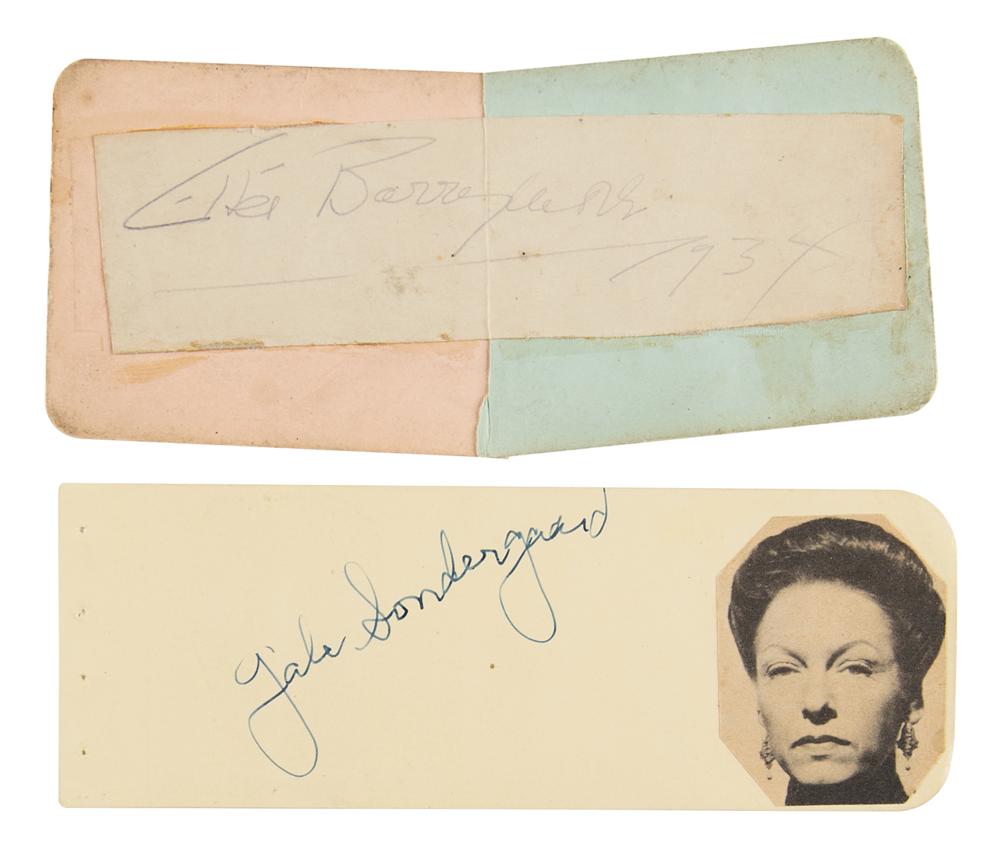 Ethel Barrymore
1934
Gale Sondergaard